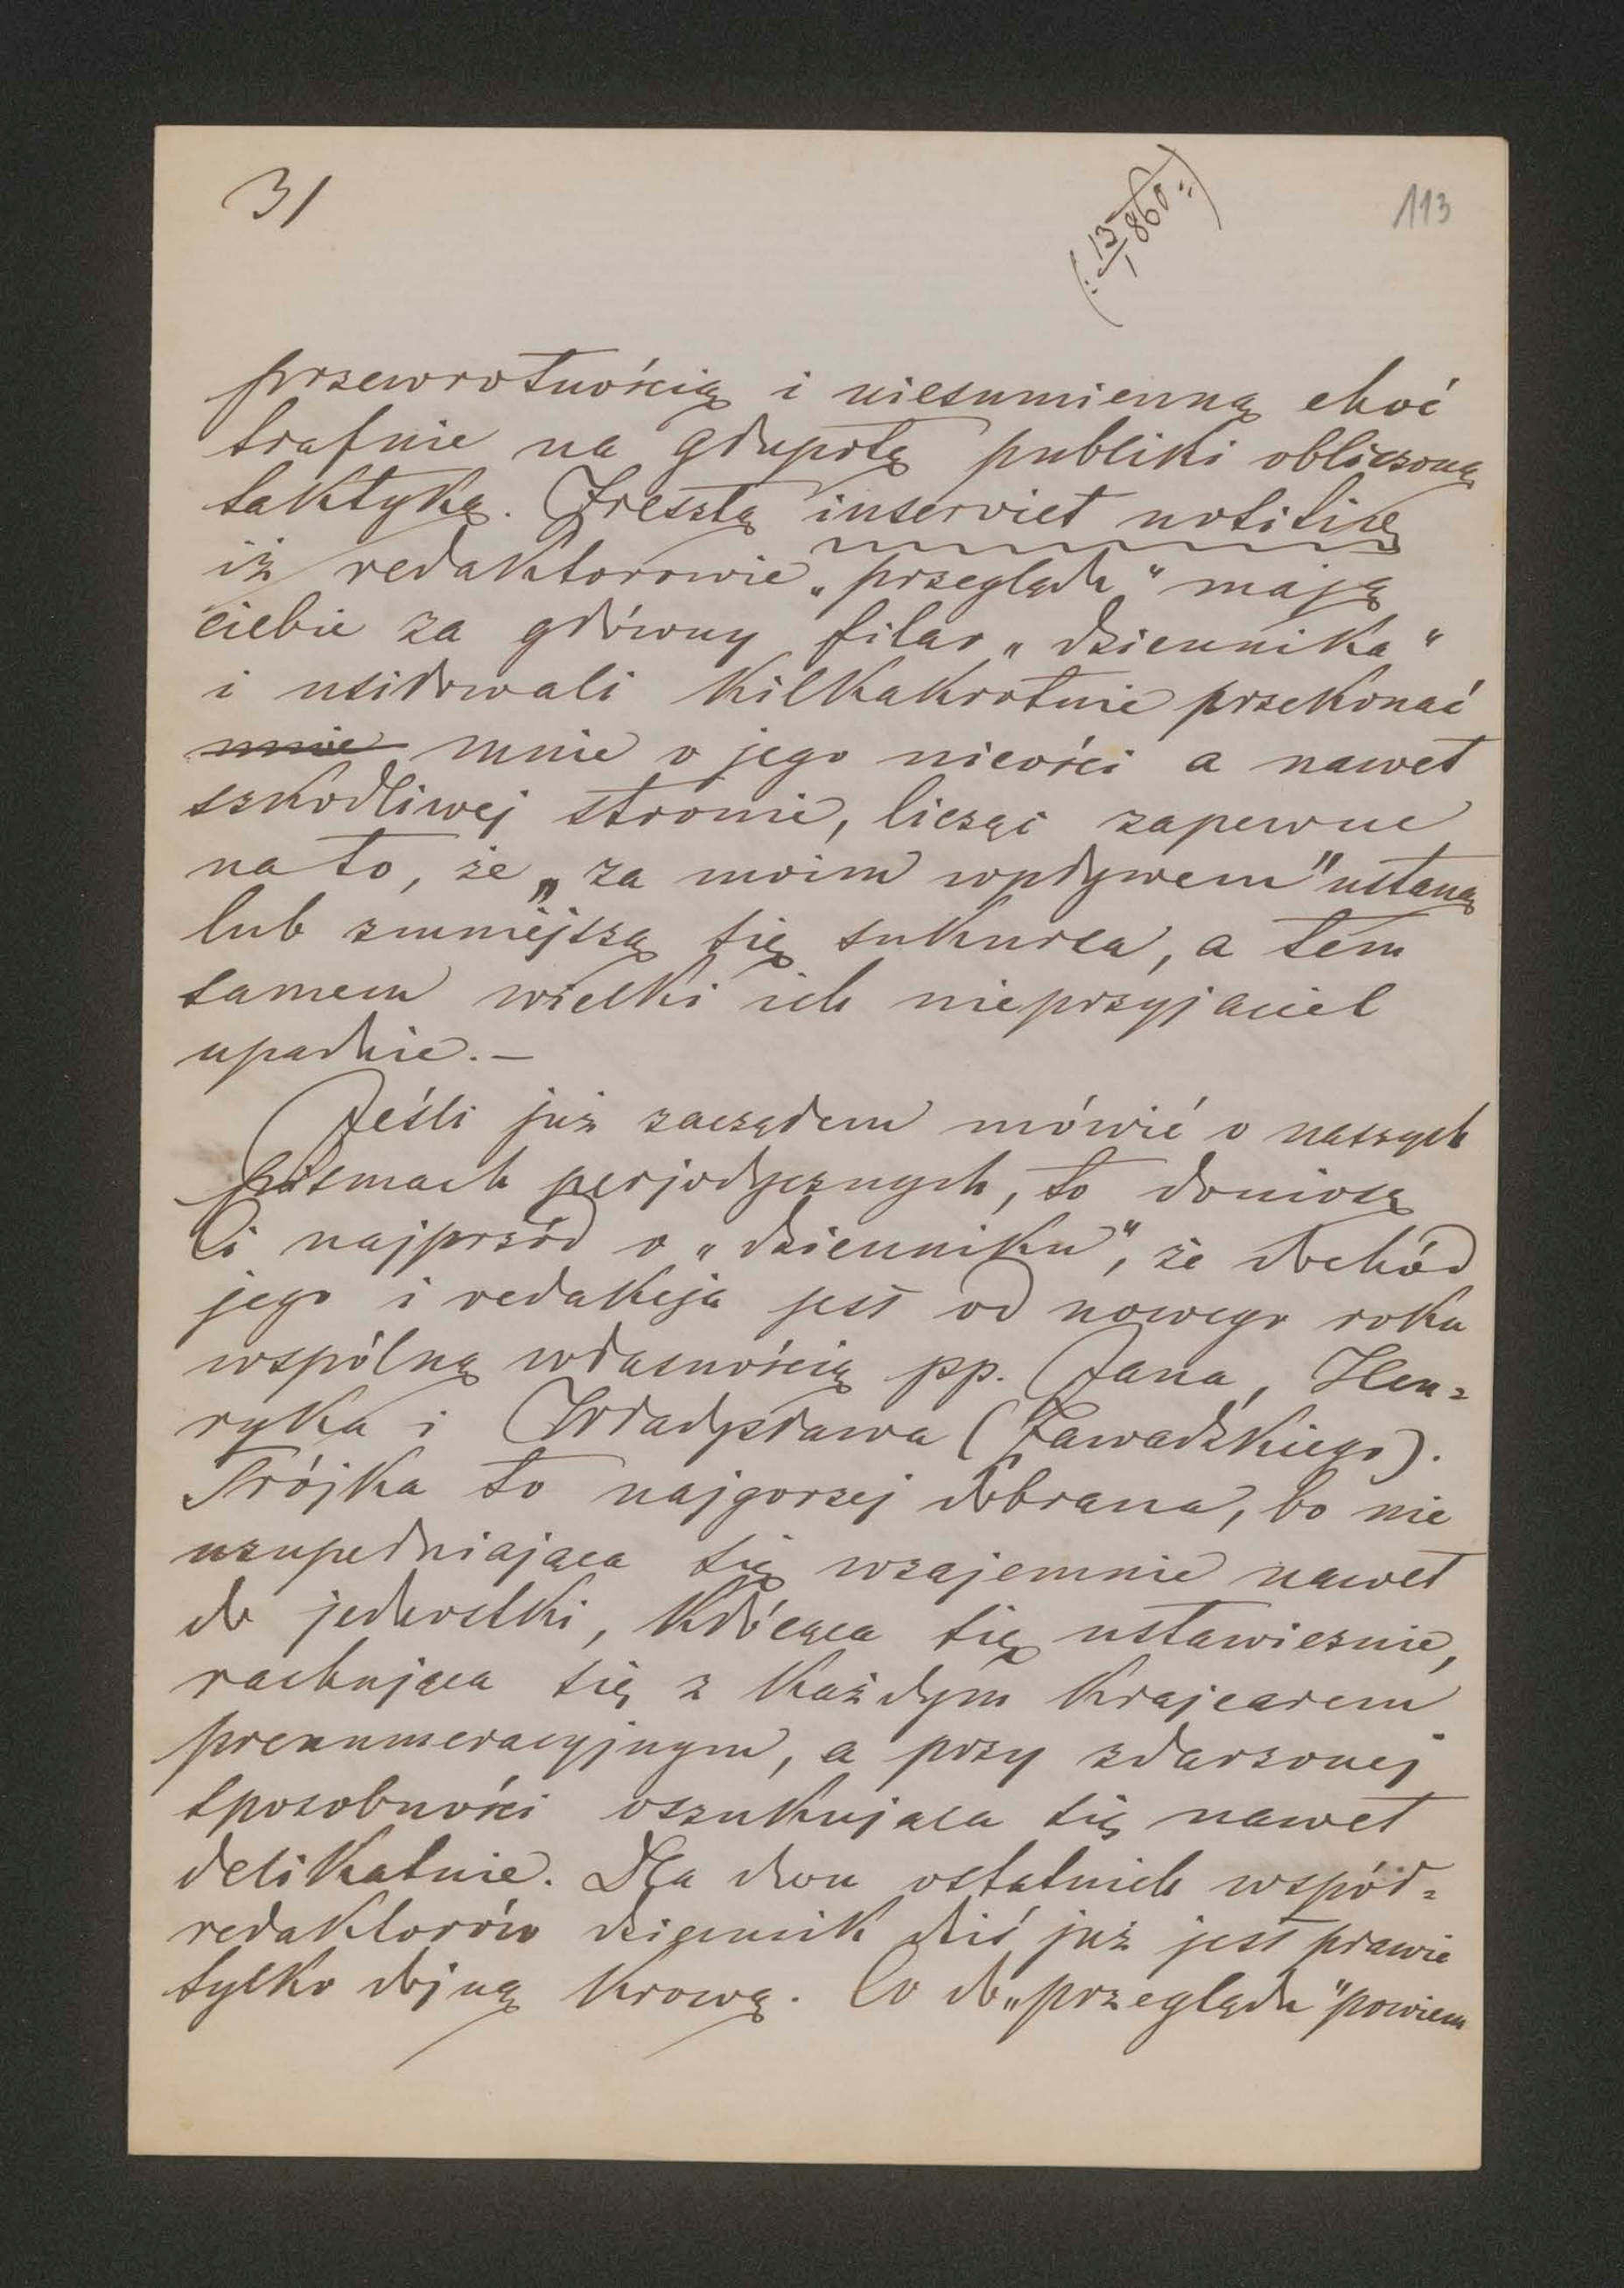 3/
(: 13/1 860 :)
113
przewrotnością i niesumienną choć
trafnie na głupotę publiki obliczoną
taktyką. Zresztą inserviet notitiae
iż redaktorowie „przeglądu“ mają
ciebie za główny filar „dziennika“
i usiłowali kilkakrotnie przekonać
mnie mnie o jego nicości a nawet
szkodliwej stronie, licząc zapewne
na to, że „za moim wpływem" ustaną
lub zmniejszą się sukursa, a tém
samem wielki ich nieprzyjaciel
upadnie. —
Jeśli już zacząłem mówić o naszych
pismach perjodycznych, to doniosę
Ci najprzód o „dzienniku“, że dochód
jego i redakcja jest od nowego roku
wspólną własnością pp. Jana, Hen=
ryka i Władysława (Zawadzkiego).
Trójka to najgorzej dobrana, bo nie
uzupełniająca się wzajemnie nawet
do jednostki, kłócąca się ustawicznie,
rachująca się z każdym krajcarem
prenumeracyjnym, a przy zdarzonej
sposobności oszukująca się nawet
delikatnie. Dla dwu ostatnich współ=
redaktorów dziennik dziś już jest prawie
tylko dojną krową. Co do „przeglądu" powiem